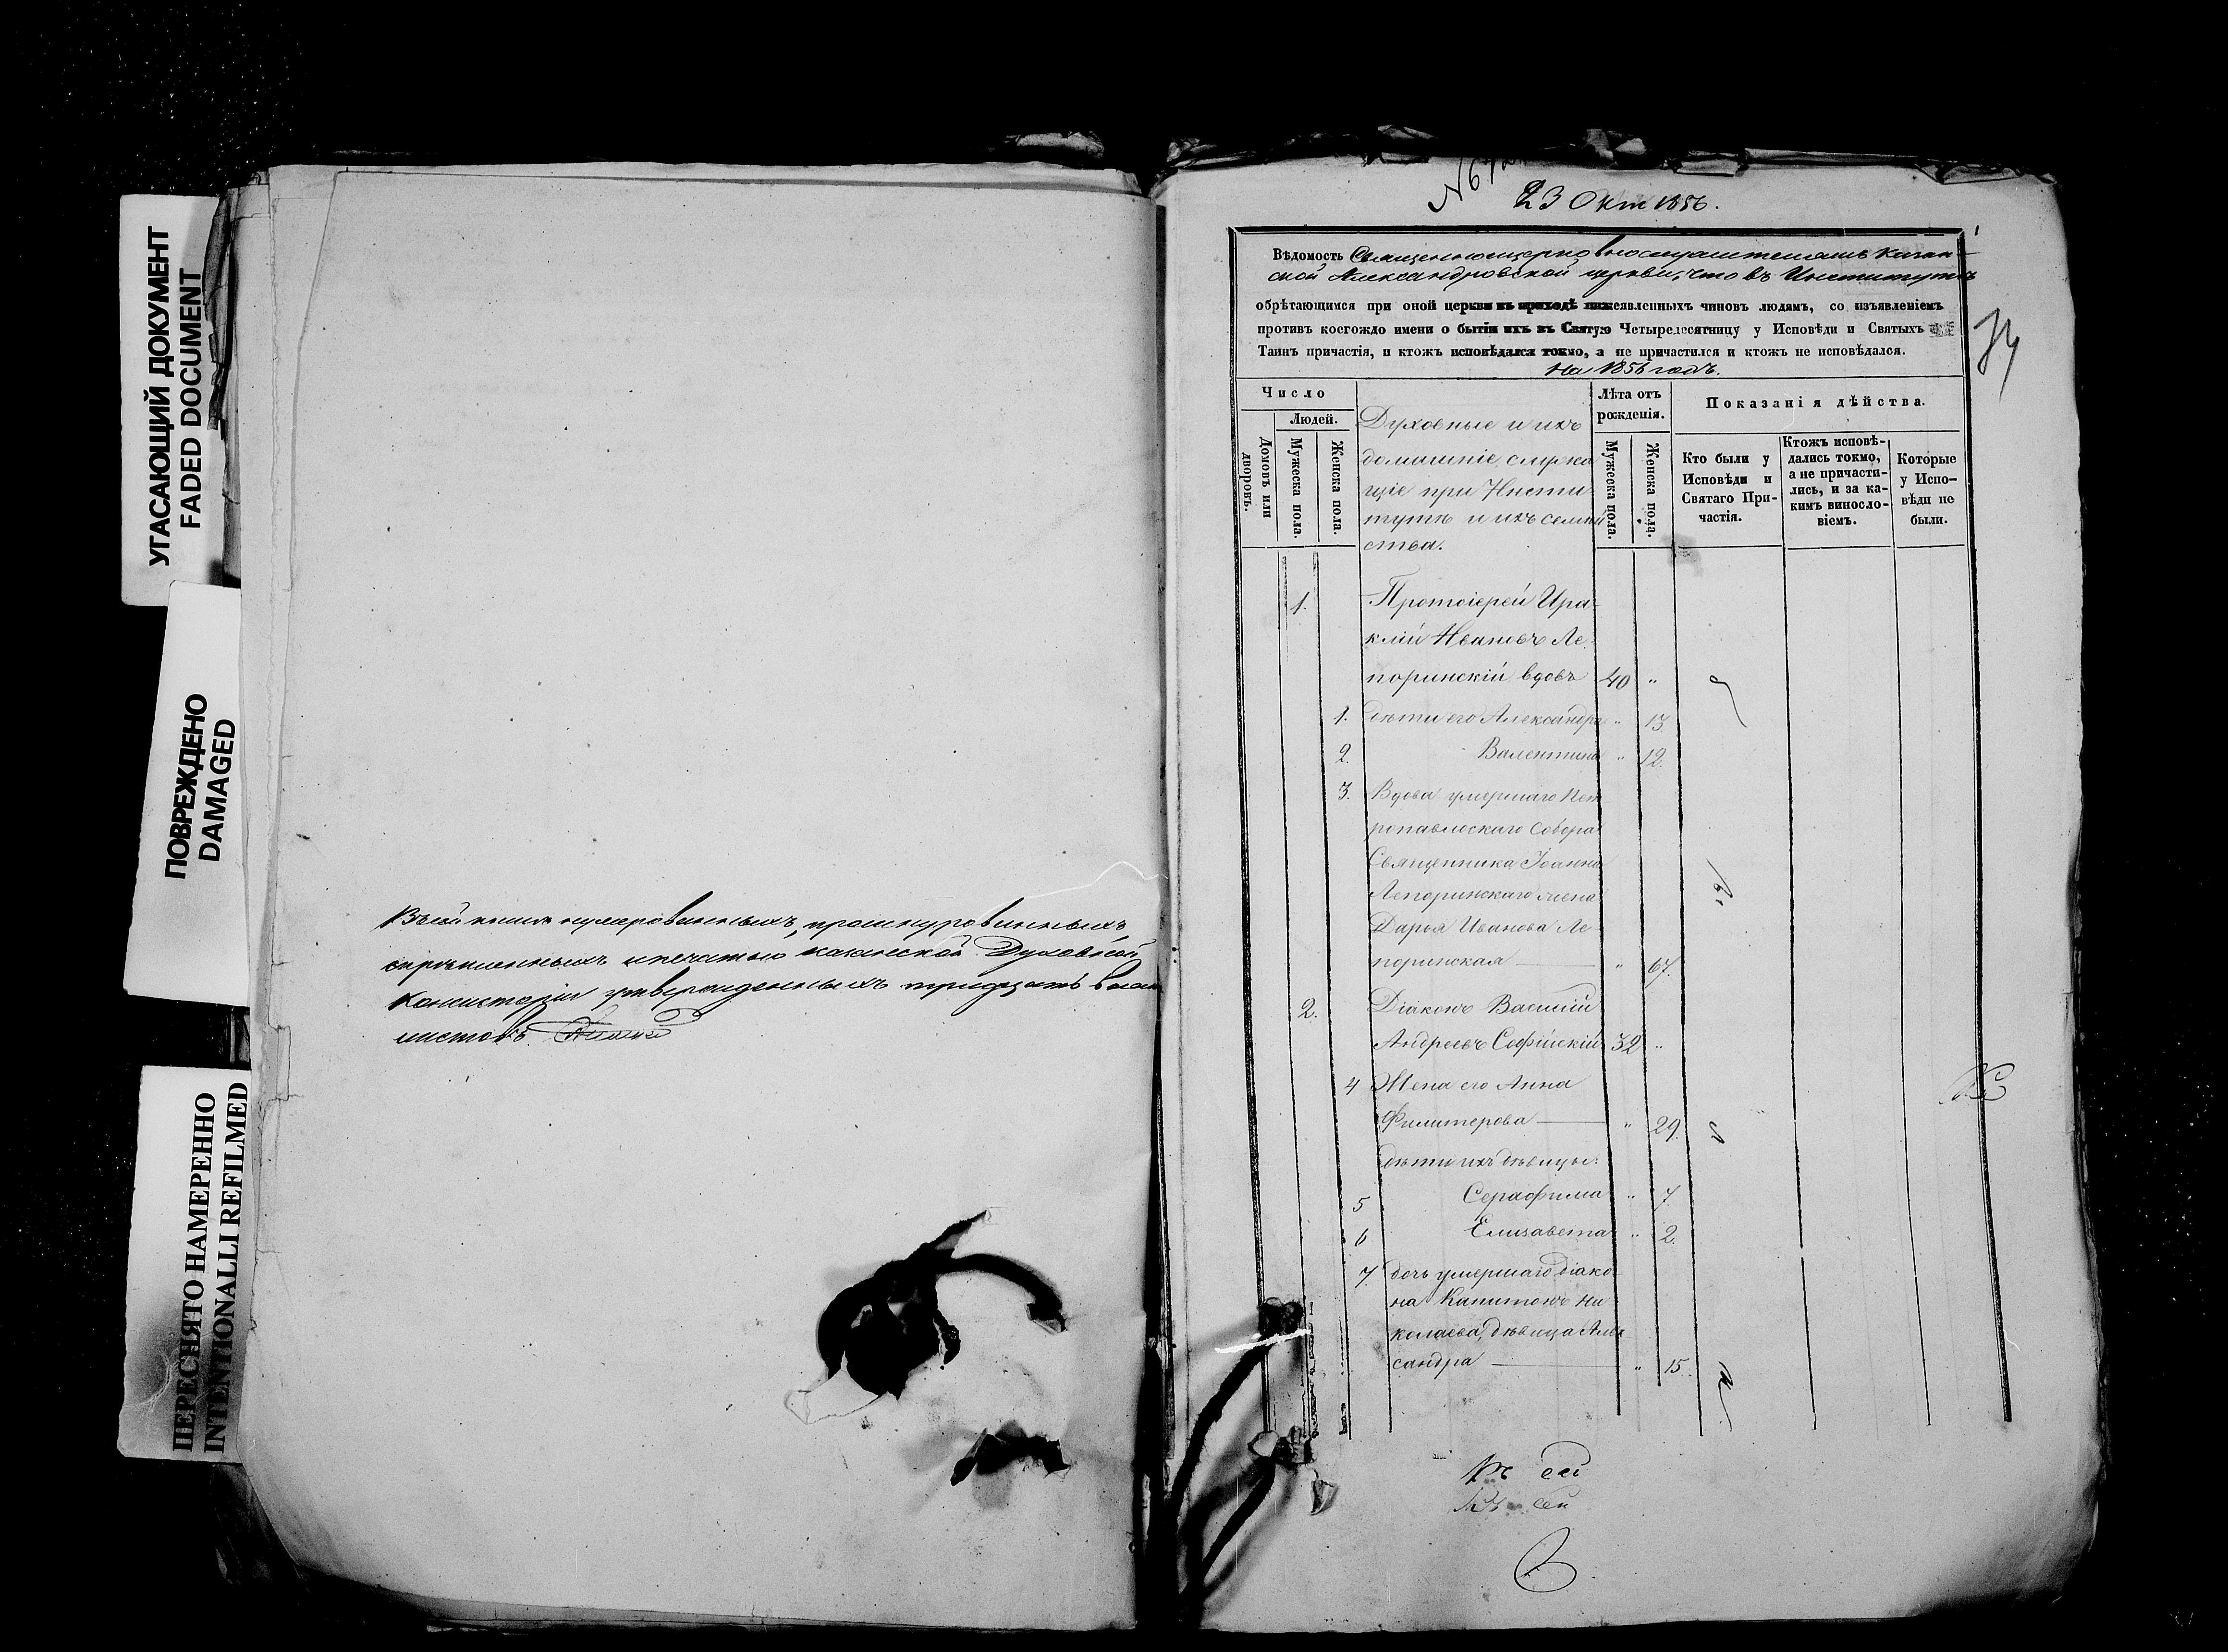 УГАСАЮЩИЙ ДОКУМЕНТ
FADED DOCUMENT
ПОВРЕЖДЕНО
DAMAGED
ПЕРЕСНЯТО НАМЕРЕННО
INTENTIONALLI REFILMED
Въ сей книге нумерованныхъ, прошнурованныхъ,
скрѣпленныхъ и печатью Казанской Духовной
Консисторіи утвержденныхъ тридцать
листовъ
23 Окт 1856.
Вѣдомость Священноцерковнослужителямъ Казан-
ской Александровской церкви, что въ Институтѣ
обрѣтающимся при оной церкви въ приходѣ нижеявленныхъ чиновъ людамъ, со изъявленіемъ
противъ коегождо имени о бытіи ихъ въ Святую Четыредесятницу у Исповѣди и Святыхъ
Таинъ причастія, и ктожъ исповѣдался токмо, а не причастился и ктожъ не исповѣдался.
На 1856 годъ.
74
Число
Людей.
Домовъ или дворовъ.
Мужеска пола.
Женска пола.
Духовные и ихъ
домашніе, служа
щіе при Инсти
тутѣ и ихъ семей
ства.
Лѣта отъ
рожденія.
Мужеска пола.
Женска пола.
Показанія дѣйства.
Кто были у
Исповѣди и
Святаго При-
частія.
Ктожъ исповѣ-
дались токмо,
а не причасти-
лись, и за ка-
кимъ винosло-
віемъ.
Которые
у Испо-
вѣди не
были.
1. Протоіерей Ира-
клій Ивановъ Ле-
поринскій вдовъ 40 "
1. дѣти его Александра " 13
2. Валентина " 12.
3. Вдова умершаго Пет
ропавлоскаго Собора
Священника Іоанна
Лепоринскаго жена
Дарья Иванова Ле
поринская " 67.
2. Діаконъ Василій
Андреевъ Софійскій 32 "
4 Жена его Анна
Филитерова " 29.
дѣти ихъ дѣвицы:
5 Серафима " 7.
6 Елизавета " 2.
7. дочь умершаго діако
на Капитонъ Ни
колаева, дѣвица Алек
сандра " 15.
Къ сей
Къ сей